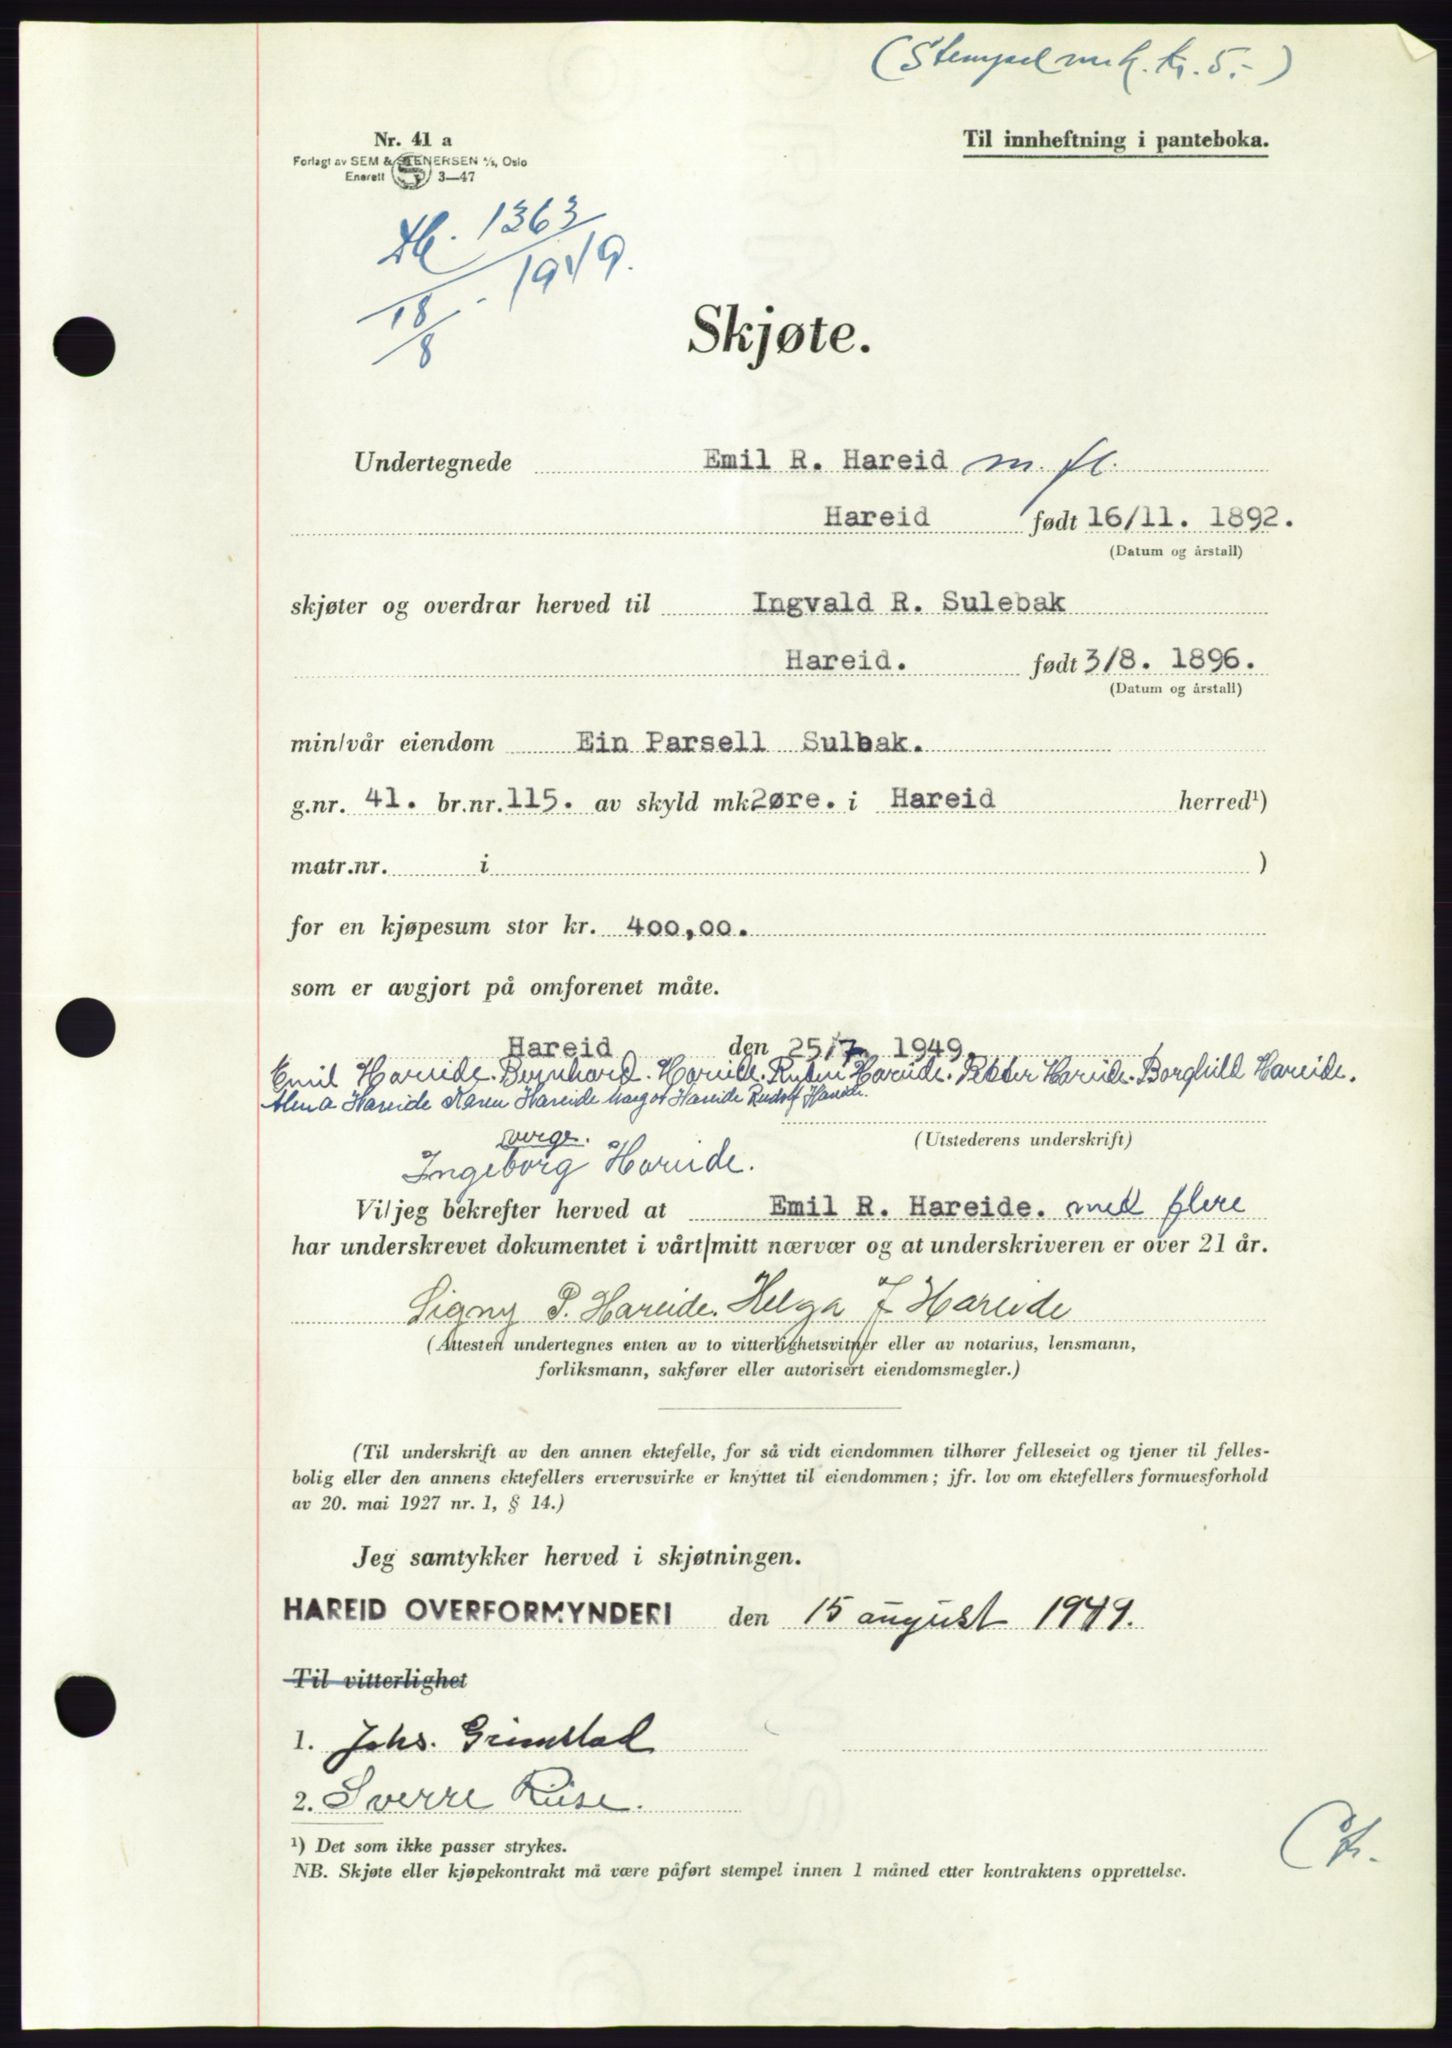 (Stempel mrk. kr. 5.-)
Nr. 41 a
Til innheftning i panteboka.
Forlagt av SEM & STENERSEN A/S, Oslo
Enerett 3—47
1363
18/8 - 1949.
Skjøte.
Undertegnede Emil R. Hareid m. fl.
Hareid født 16/11. 1892.
(Datum og årstall)
skjøter og overdrar herved til Ingvald R. Sulebak
Hareid. født 3/8. 1896.
(Datum og årstall)
min/vår eiendom Ein Parsell Sulbak.
g.nr. 41. br.nr. 115. av skyld mk 2øre. i Hareid herred¹)
matr.nr. i )
for en kjøpesum stor kr. 400,00.
som er avgjort på omforenet måte.
Hareid den 25/7 1949.
Emil Hareide. Bernhard. Hareide. Ruben Hareide. Petter Hareide. Borghild Hareide.
Alma Hareide Karen Hareide Margot Hareide Rudolf Hareide.
verge.
(Utstederens underskrift)
Ingeborg Hareide.
Vi/jeg bekrefter herved at Emil R. Hareide. med flere
har underskrevet dokumentet i vårt/mitt nærvær og at underskriveren er over 21 år.
Signy P. Hareide. Helga J Hareide
(Attesten undertegnes enten av to vitterlighetsvitner eller av notarius, lensmann,
forliksmann, sakfører eller autorisert eiendomsmegler.)
(Til underskrift av den annen ektefelle, for så vidt eiendommen tilhører felleseiet og tjener til felles-
bolig eller den annens ektefellers ervervsvirke er knyttet til eiendommen; jfr. lov om ektefellers formuesforhold
av 20. mai 1927 nr. 1, § 14.)
Jeg samtykker herved i skjøtningen.
HAREID OVERFORMYNDERI den 15 august 1949.
Til vitterlighet
1. Johs. Grimstad
2. Sverre Riise.
¹) Det som ikke passer strykes.
NB. Skjøte eller kjøpekontrakt må være påført stempel innen 1 måned etter kontraktens opprettelse.